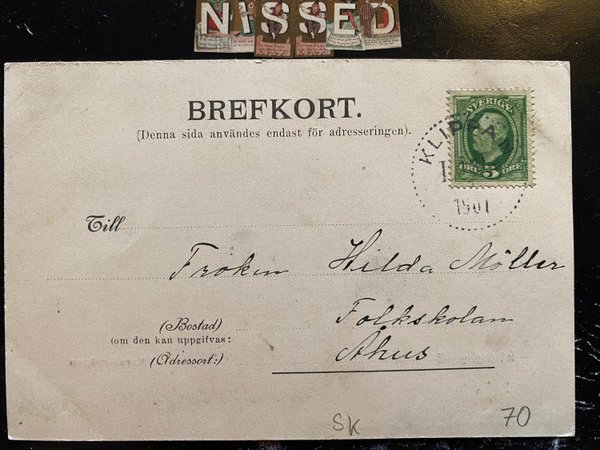 NISSED
BREFKORT.
(Denna sida användes endast för adresseringen).
SVERIGE
ÖRE 5 ÖRE
KLIPPAN
1901
Till
Fröken Hilda Möller
(Bostad)
(om den kan uppgifvas:
Folkskolan
(Adressort:)
Åhus
SK
70